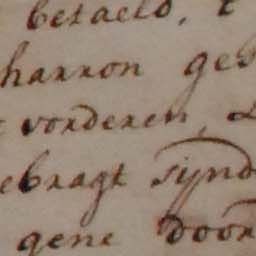 betaeld, t
harron geb
t vorderen, d
ebragt sijnd
gene door